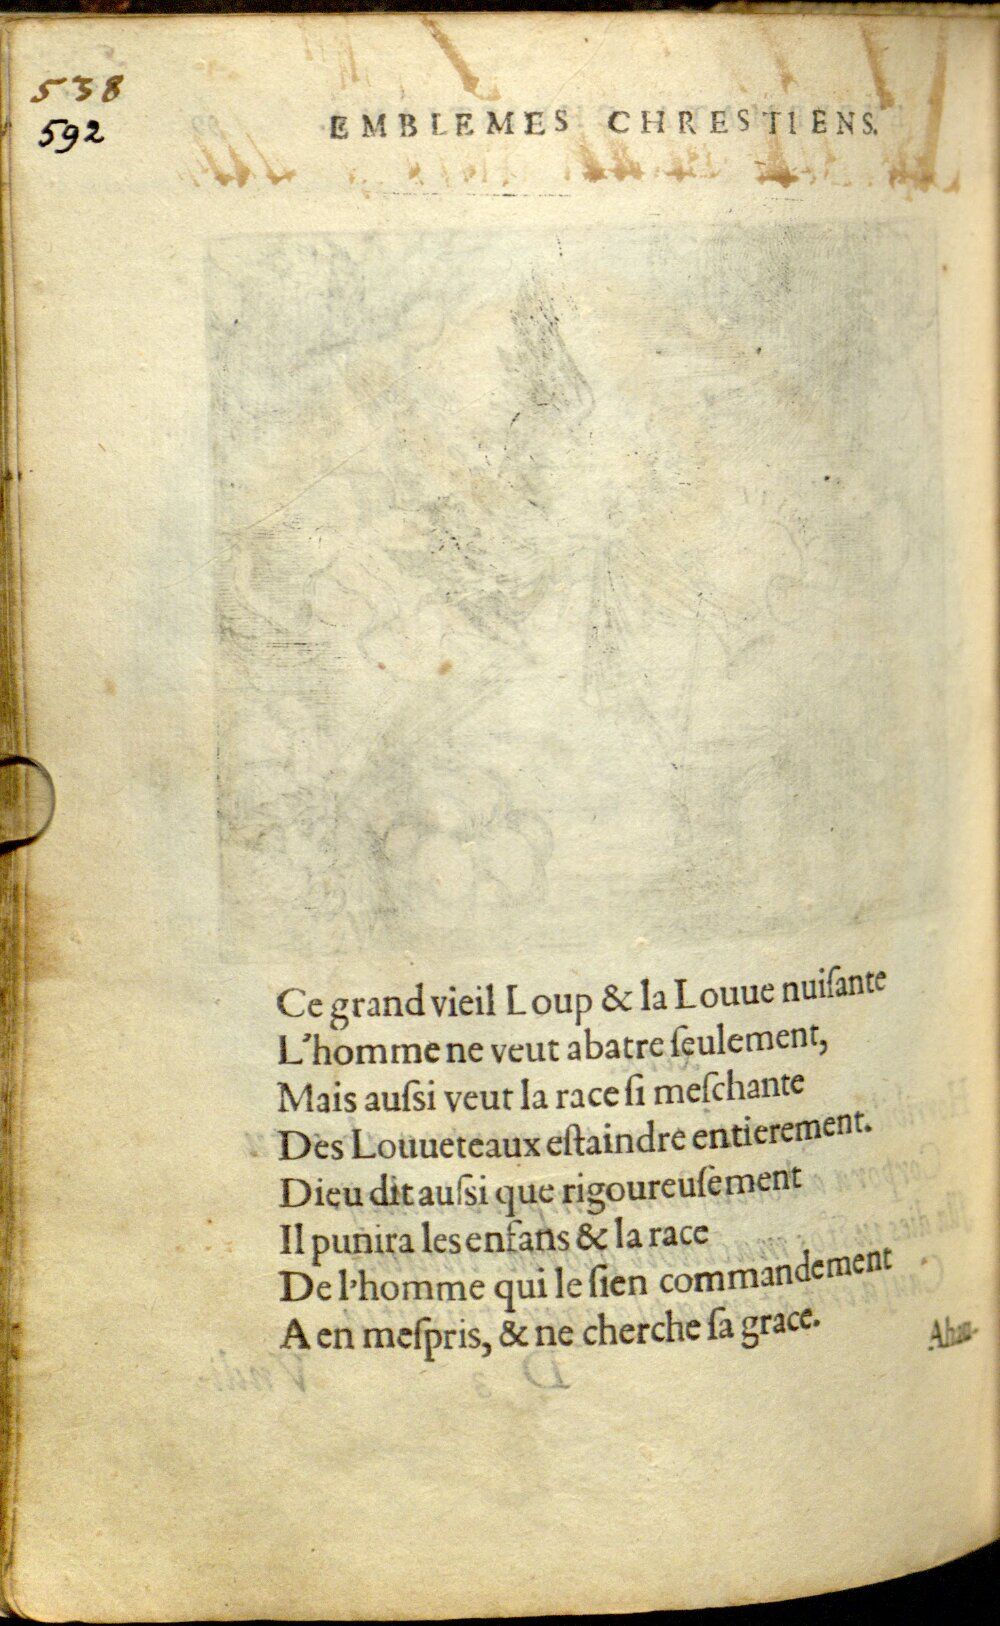 538
592
EMBLEMES CHRESTIENS.
Ce grand vieil Loup & la Louue nuiſante
L'homme ne veut abatre ſeulement,
Mais auſsi veut la race ſi meſchante
Des Louueteaux eſtaindre entierement.
Dieu dit auſsi que rigoureuſement
Il punira les enfans & la race
De l'homme qui le ſien commandement
A en meſpris, & ne cherche ſa grace.